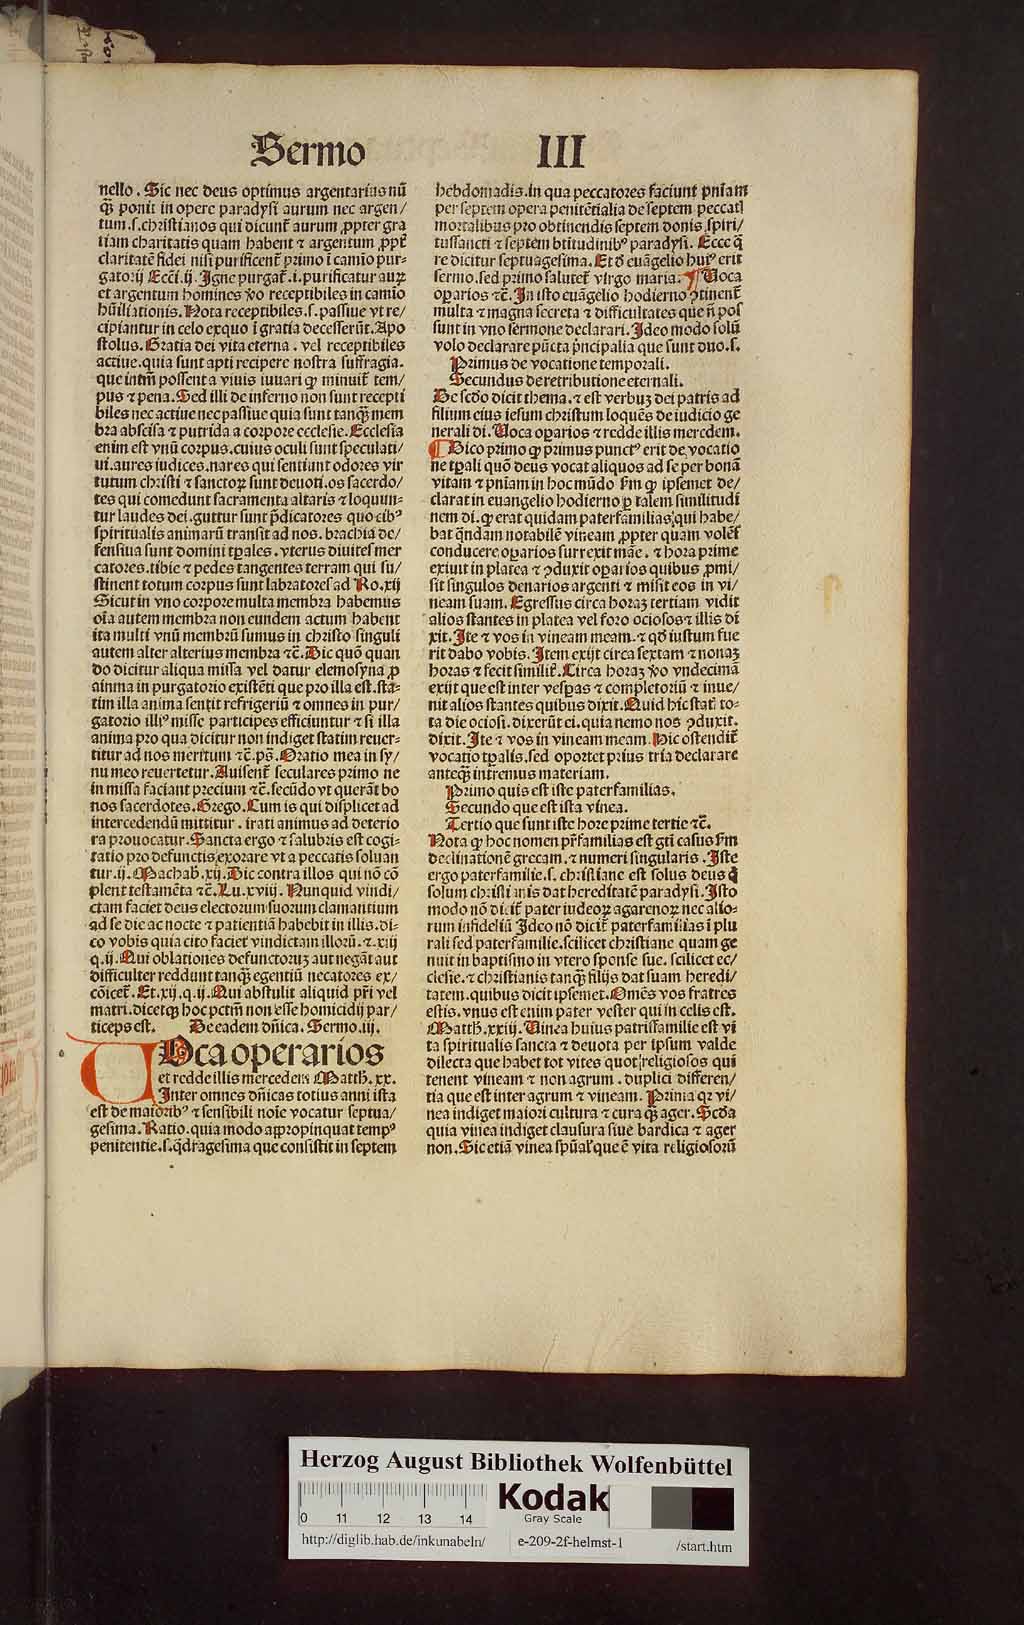 Sermo III
nello. Sic nec deus optimus argentarius nũ
ꝙ̃ ponit in opere paradysi aurum nec argen/
tum.s.christianos qui dicunt̃ aurum ꝓpter gra
tiam charitatis quam habent ⁊ argentum ꝓpt̃
claritatẽ fidei nisi purificent̃ primo ĩ camĩo pur-
gato:ij Ecc̃i.ij. Igne purgat̃.i.purificatur auꝝ
et argentum homines ꝟo receptibiles in camĩo
hũiliationis. Nota receptibiles.s.passiue vt re/
cipiantur in celo exquo ĩ gratia decesserũt. Apo
stolus. Gratia dei vita eterna. vel receptibiles
actiue.quia sunt apti recipere nostra suffragia.
que intm̃ possent a viuis iuuari ꝙ minuit̃ tem/
pus ⁊ pena. Sed illi de inferno non sunt recepti
biles nec actiue nec passiue quia sunt tanꝙ̃ mem
bra abscisa ⁊ putrida a corpore ecclesie. Ecclesia
enim est vnũ corpus.cuius oculi sunt speculati/
ui.aures iudices.nares qui sentiunt odores vir
tutum christi ⁊ sanctoꝝ sunt deuoti.os sacerdo/
tes qui comedunt sacramenta altaris ⁊ loquun-
tur laudes dei.guttur sunt p̃dicatores quo cibꝰ
spiritualis animarũ transit ad nos. brachia de/
fensiua sunt domini tꝑales. vterus diuites mer
catores. tibie ⁊ pedes tangentes terram qui su/
stinent totum corpus sunt labratores ad Ro.xij
Sicut in vno corpore multa membra habemus
oĩa autem membra non eundem actum habent
ita multi vnũ membrũ sumus in christo singuli
autem alter alterius membra ⁊c̃. Hic quõ quan
do dicitur aliqua missa vel datur elemosyna ꝓ
anima in purgatorio existẽti que pro illa est.sta-
tim illa anima sentit refrigeriũ ⁊ omnes in pur/
gatorio illiꝰ misse participes efficiuntur ⁊ si illa
anima pro qua dicitur non indiget statim reuer-
titur ad nos meritum ⁊c̃. ps̃. Oratio mea in sy/
nu meo reuertetur. Auisent̃ seculares primo ne
in missa faciant precium ⁊c̃. secũdo vt querãt bo
nos sacerdotes. Grego. Cum is qui displicet ad
intercedendũ mittitur. irati animus ad deterio
ra prouocatur. Sancta ergo ⁊ salubris est cogi-
tatio pro defunctis exorare vt a peccatis soluan
tur.ij. Machab̃.xij. Hic contra illos qui nõ cõ
plent testamẽta ⁊c̃. Lu.xviij. Nunquid vindi/
ctam faciet deus electorum suorum clamantium
ad se die ac nocte ⁊ patientiã habebit in illis.di-
co vobis quia cito faciet̃ vindictam illorũ. ⁊.xiij
q.ij. Qui oblationes defunctoruʒ aut negãt aut
difficulter reddunt tanꝙ̃ egentiũ necatores ex/
cõicet̃. Et.xij.q.ij. Qui abstulit aliquid pr̃i vel
matri.dicetqꝫ hoc pctm̃ non esse homicidij par/
ticeps est. De eadem dñica. Sermo.iij.
VOca operarios
et redde illis mercedem Matth̃.xx.
Inter omnes dñicas totius anni ista
est de maioribꝰ ⁊ sensibili noĩe vocatur septua/
gesima. Ratio.quia modo appropinquat tempꝰ
penitentie.s.q̃dragesima que consistit in septem
hebdomadis.in qua peccatores faciunt pñiam
per septem opera penitẽtialia de septem peccatꝭ
mortalibus pro obtinendis septem donis spiri/
tussancti ⁊ septem btĩtudinibꝰ paradysi. Ecce q̃
re dicitur septuagesima. Et d̕ euãgelio huiꝰ erit
sermo.sed primo salutet̃ virgo maria. ¶ Uoca
oꝑarios ⁊c̃. In isto euãgelio hodierno ꝯtinent̃
multa ⁊ magna secreta ⁊ difficultates que ñ pos
sunt in vno sermone declarari. Ideo modo solũ
volo declarare pũcta p̃ncipalia que sunt duo.s.
Primus de vocatione temporali.
Secundus de retributione eternali.
De scd̃o dicit thema. ⁊ est verbuʒ dei patris ad
filium eius iesum christum loquẽs de iudicio ge
nerali di. Uoca oꝑarios ⁊ redde illis mercedem.
¶ Dico primo ꝙ primus punctꝰ erit de vocatio
ne tꝑali quõ deus vocat aliquos ad se per bonã
vitam ⁊ pñiam in hoc mũdo ẜm ꝙ ipsemet de/
clarat in euangelio hodierno ꝑ talem similitudi
nem di. ꝙ erat quidam paterfamilias qui habe/
bat q̃ndam notabilẽ vineam ꝓpter quam volẽs
conducere oꝑarios surrexit mãe. ⁊ hora prime
exiuit in platea ⁊ ꝯduxit oꝑarios quibus ꝓmi/
sit singulos denarios argenti ⁊ misit eos in vi/
neam suam. Egressus circa horaʒ tertiam vidit
alios stantes in platea vel foro ociosos ⁊ illis di
xit. Ite ⁊ vos in vineam meam. ⁊ qd̕ iustum fue
rit dabo vobis. Item exijt circa sextam ⁊ nonaʒ
horas ⁊ fecit similit̃. Circa horaʒ ꝟo vndecimã
exijt que est inter vesꝑas ⁊ completoriũ ⁊ inue/
nit alios stantes quibus dixit. Quid hic statꝭ to-
ta die ociosi. dixerũt ei. quia nemo nos ꝯduxit.
dixit. Ite ⁊ vos in vineam meam. Hic ostendit̃
vocatio tꝑalis.sed oportet prius tria declarare
anteꝙ̃ intremus materiam.
Primo quis est iste paterfamilias.
Secundo que est ista vinea.
Tertio que sunt iste hore prime tertie ⁊c̃.
Nota ꝙ hoc nomen pr̃familias est gtĩ casus ẜm
declinationẽ grecam. ⁊ numeri singularis. Iste
ergo paterfamilie.s. christiane est solus deus q̃
solum christianis dat hereditatẽ paradysi. Isto
modo nõ dicit̃ pater iudeoꝝ agarenoꝝ nec alio-
rum infideliũ Ideo nõ dicit̃ paterfamilias ĩ plu
rali sed paterfamilie.scilicet christiane quam ge
nuit in baptismo in vtero sponse sue. scilicet ec/
clesie. ⁊ christianis tanꝙ̃ filijs dat suam heredi/
tatem.quibus dicit ipsemet. Omẽs vos fratres
estis. vnus est enim pater vester qui in celis est.
Matth̃.xxiij. Uinea huius patrissamilie est vi
ta spiritualis sancta ⁊ deuota per ipsum valde
dilecta que habet tot vites quot religiosos qui
tenent vineam ⁊ non agrum. duplici differen/
tia que est inter agrum ⁊ vineam. Prima qꝛ vi/
nea indiget maiori cultura ⁊ cura ꝙ̃ ager. Scd̃a
quia vinea indiget clausura siue bardica ⁊ ager
non. Sic etiã vinea spũalꝭ que ẽ vita religiosorũ
Herzog August Bibliothek Wolfenbüttel
0 11 12 13 14
Kodak
Gray Scale
http://diglib.hab.de/inkunabeln/ e-209-2f-helmst-1 /start.htm